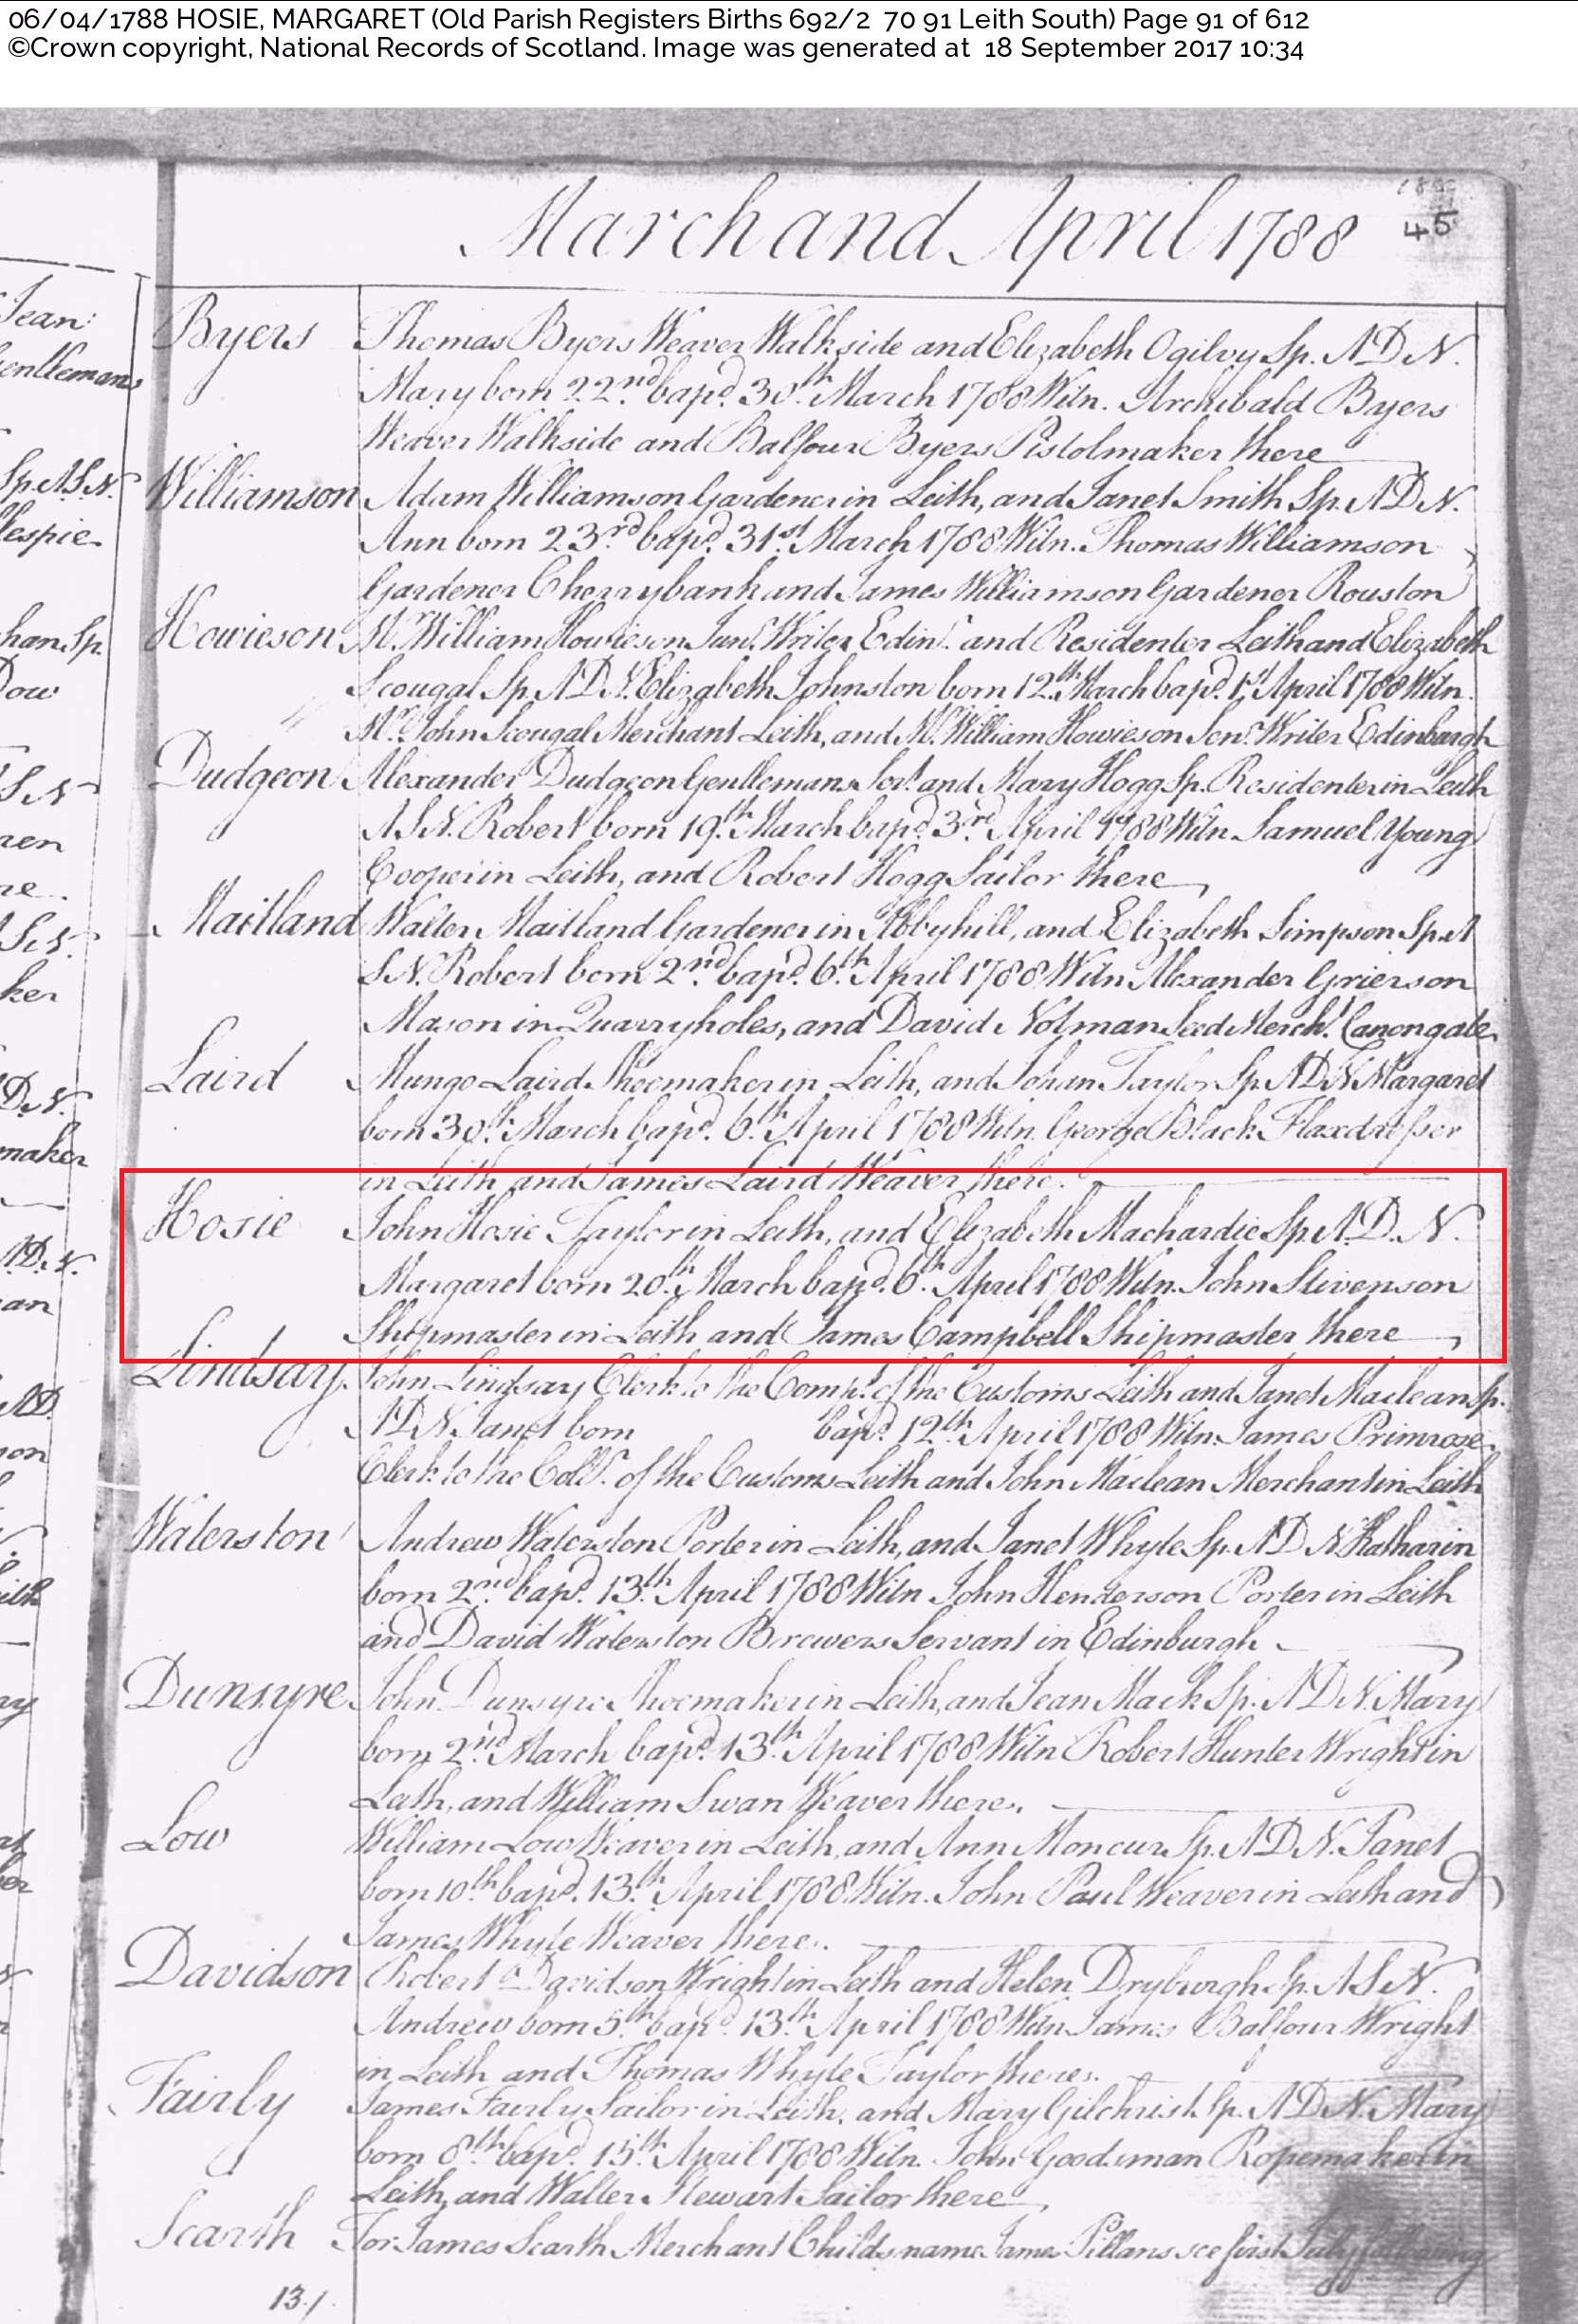 06/04/1788 HOSIE, MARGARET (Old Parish Registers Births 692/2 70 91 Leith South) Page 91 of 612
©Crown copyright, National Records of Scotland. Image was generated at 18 September 2017 10:34
March and April 1788
45
Byers Thomas Byers Weaver Walkside and Elizabeth Ogilvy Sp. A D N.
Mary born 22nd bapd. 30th March 1788 Witn. Archibald Byers
Weaver Walkside and Balfour Byers Pistolmaker there
Williamson Adam Williamson Gardener in Leith, and Janet Smith Sp. A D N.
Ann born 23rd bapd. 31st March 1788 Witn. Thomas Williamson
Gardener Cherrybank and James Williamson Gardener Rouston
Howieson Mr. William Howieson Junr. Writer Edinr. and Residenter Leith and Elizabeth
Scougal Sp. A D N. Elizabeth Johnston born 12th March bapd. 1st April 1788 Witn.
Mr. John Scougal Merchant Leith, and Mr. William Howieson Senr. Writer Edinburgh
Dudgeon Alexander Dudgeon Gentlemans Servt. and Mary Hogg Sp. Residenter in Leith
A S N. Robert born 19th March bapd. 3rd April 1788 Witn Samuel Young
Cooper in Leith, and Robert Hogg Sailor there
Maitland Walter Maitland Gardener in Abbyhill, and Elizabeth Simpson Sp. A
S N. Robert born 2nd bapd. 6th April 1788 Witn Alexander Grierson
Mason in Quarryholes, and David Notman Seed Mercht. Canongate
Laird Mungo Laird Shoemaker in Leith, and Johan Taylor Sp. A D N Margaret
born 30th March bapd. 6th April 1788 Witn. George Black Flaxdresser
in Leith and James Laird Weaver there.
Hosie John Hosie Taylor in Leith, and Elizabeth Machardie Sp. A. D. N.
Margaret born 20th March bapd. 6th April 1788 Witn. John Stivenson
Shipmaster in Leith and James Campbell Shipmaster there
Lindsay John Lindsay Clerk to the Compt. of the Customs Leith and Janet Maclean Sp.
A D N. Janet born bapd. 12th April 1788 Witn. James Primrose
Clerk to the Collr. of the Customs Leith and John Maclean Merchant in Leith
Waterston Andrew Waterston Porter in Leith, and Janet Whyte Sp. A D N Katharin
born 2nd bapd. 13th April 1788 Witn John Henderson Porter in Leith
and David Waterston Brewers Servant in Edinburgh
Dunsyre John Dunsyre Shoemaker in Leith, and Jean Mack Sp. A D N. Mary
born 2nd March bapd. 13th April 1788 Witn Robert Hunter Wright in
Leith, and William Swan Weaver there.
Low William Low Weaver in Leith, and Ann Moncur Sp. A D N. Janet
born 10th bapd. 13th April 1788. Witn. John Paul Weaver in Leith and
James Whyte Weaver there.
Davidson Robert Davidson Wright in Leith and Helen Dryburgh Sp. A S N.
Andrew born 5th bapd. 13th April 1788 Witn James Balfour Wright
in Leith and Thomas Whyte Taylor there.
Fairly James Fairly Sailor in Leith, and Mary Gilchrist Sp. A D N. Mary
born 8th bapd. 15th April 1788 Witn. John Goodsman Ropemaker in
Leith, and Walter Stewart Sailor there
Scarth For James Scarth Merchant Childs name James Pillans see first July following
131